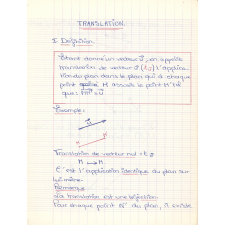 TRANSLATION.
I Définition.
Étant donné un vecteur u⃗, on appelle
translation de vecteur u⃗ l'applica-
tion du plan dans le plan qui à chaque
point M associe le point M' tel
que : MM'⃗ = u⃗
Exemple :
u⃗
Translation de vecteur nul = t
M ⟼ M
C'est l'application identique du plan sur
lui même.
Remarque
La translation est une bijection.
Pour chaque point M' du plan, il existe